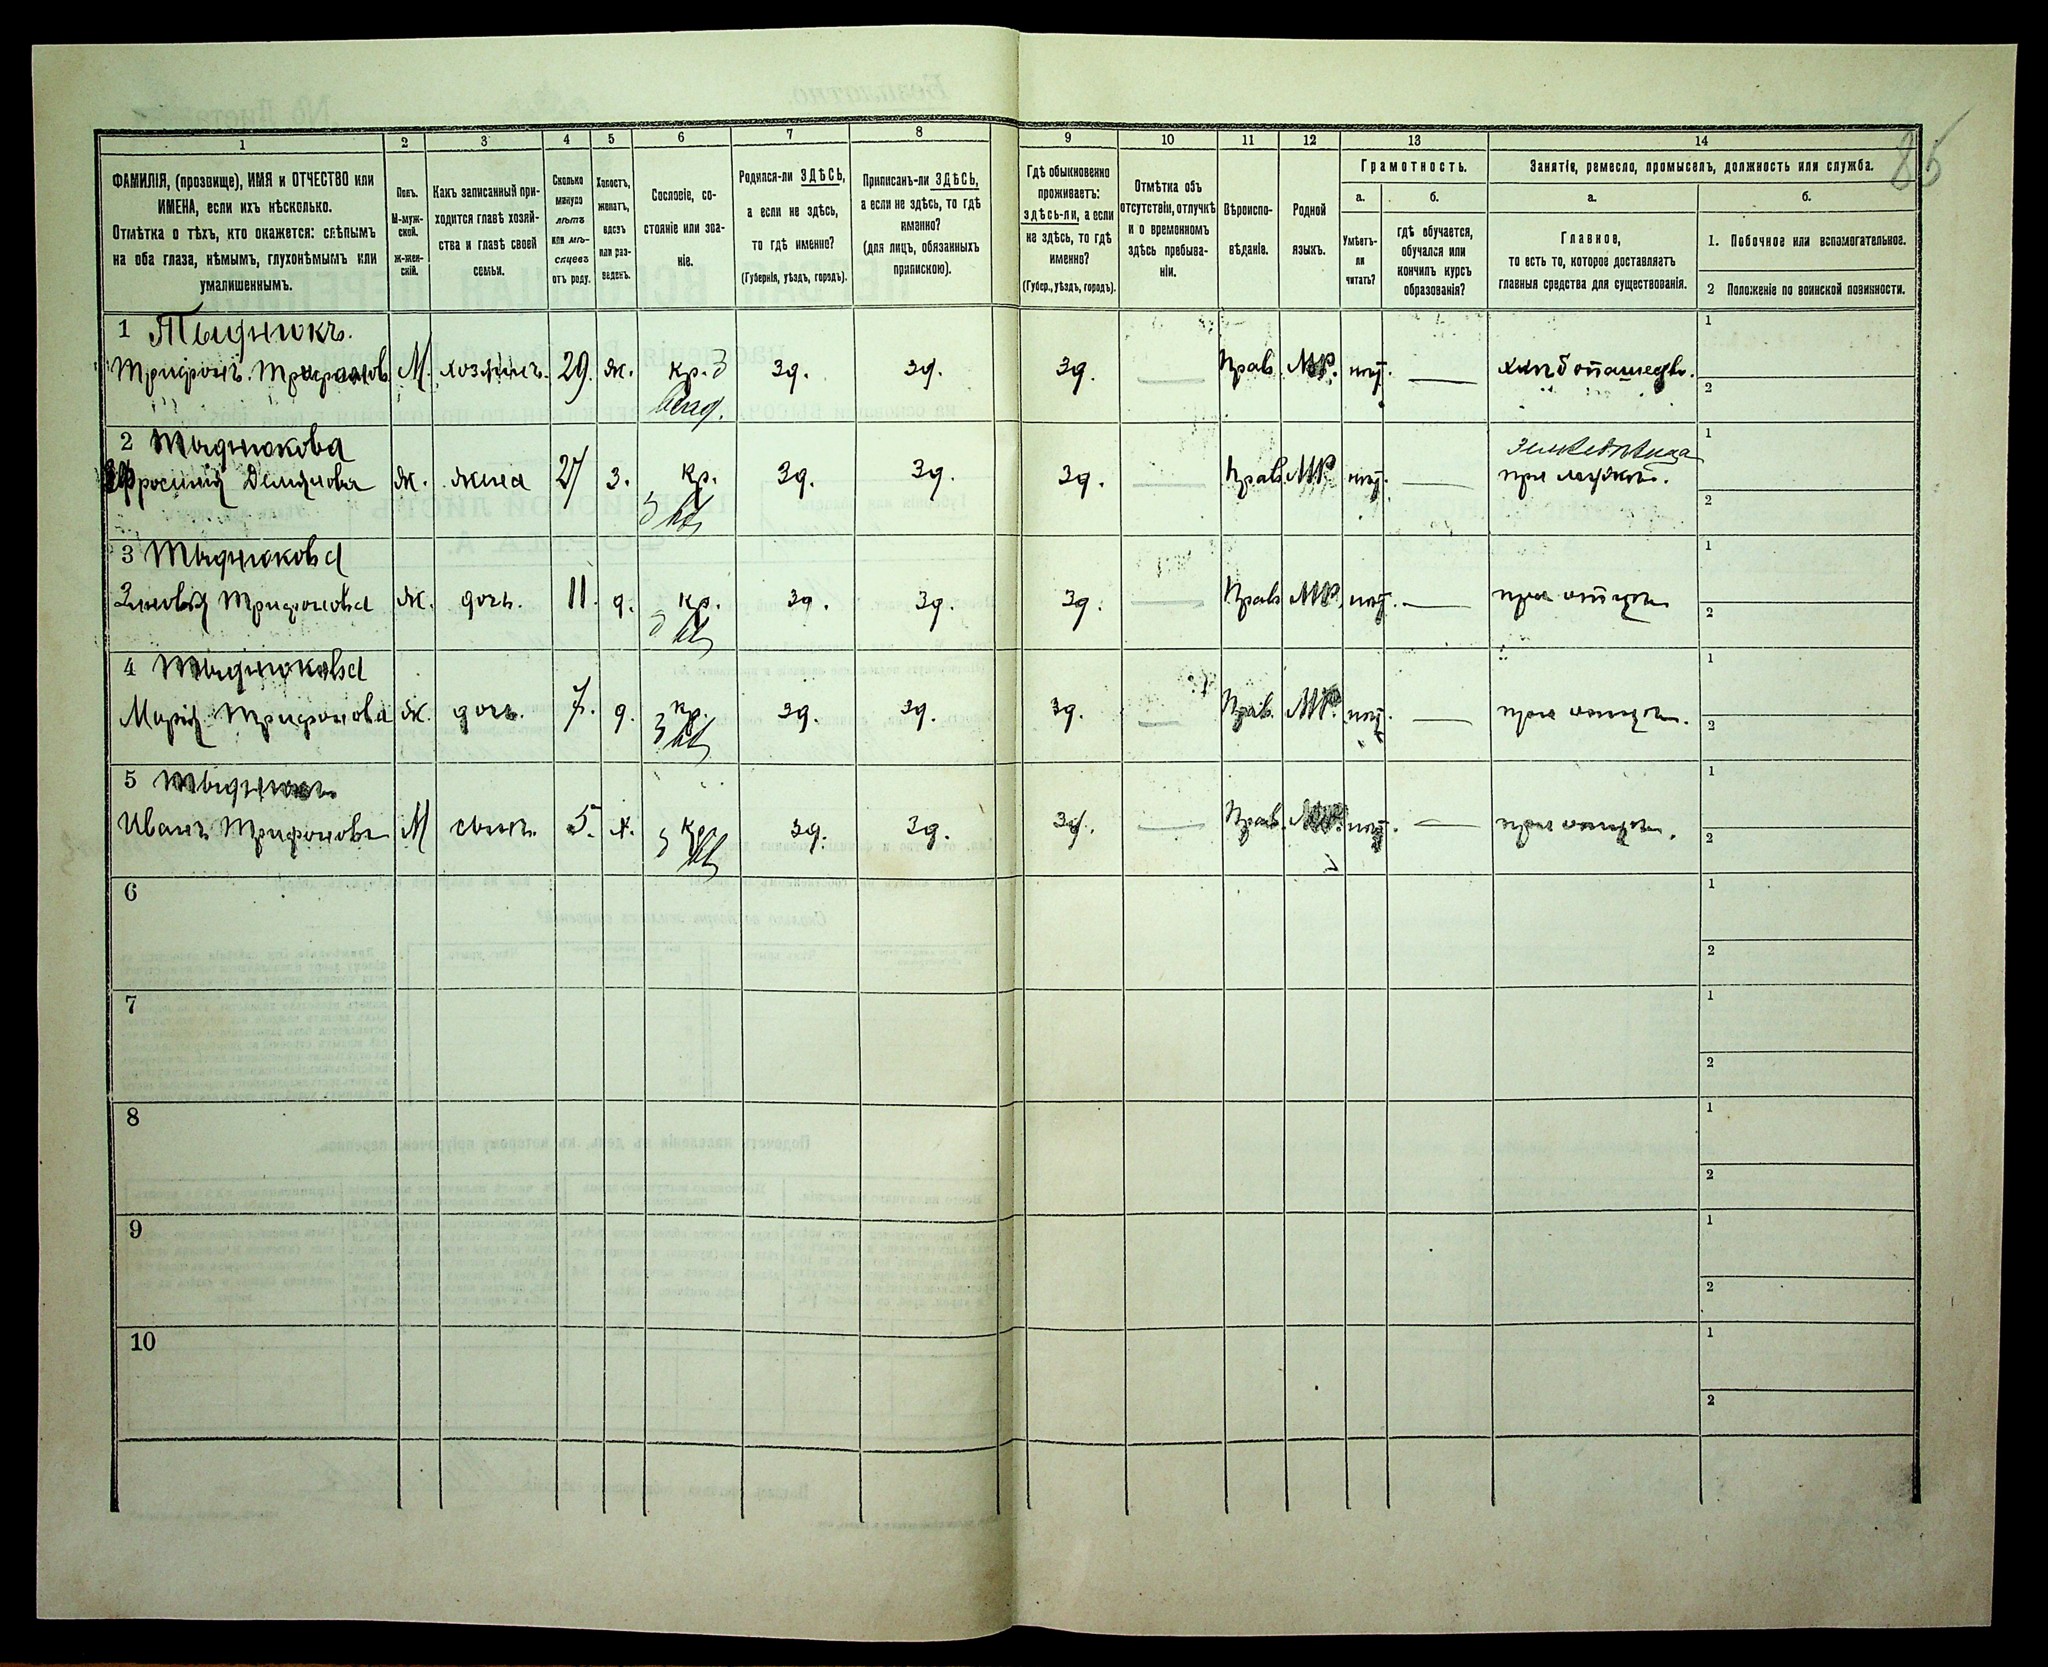 85
1
2
3
4
5
6
7
8
9
10
11
12
13
14
ФАМИЛІЯ, (прозвище), ИМЯ и ОТЧЕСТВО или
ИМЕНА, если ихъ нѣсколько.
Отмѣтка о тѣхъ, кто окажется: слѣпымъ
на оба глаза, нѣмымъ, глухонѣмымъ или
умалишеннымъ.
Полъ.
М-муж-
ской.
Ж-жен-
скій.
Какъ записанный при-
ходится главѣ хозяй-
ства и главѣ своей
семьи.
Сколько
минуло
лѣтъ
или мѣ-
сяцевъ
отъ роду.
Холостъ,
женатъ,
вдовъ
или раз-
веденъ.
Сословіе, со-
стояніе или зва-
ніе.
Родился-ли ЗДѢСЬ,
а если не здѣсь,
то гдѣ именно?
(Губернія, уѣздъ, городъ).
Приписанъ-ли ЗДѢСЬ,
а если не здѣсь, то гдѣ
именно?
(для лицъ, обязанныхъ
припискою).
Гдѣ обыкновенно
проживаетъ:
здѣсь-ли, а если
не здѣсь, то гдѣ
именно?
(Губер., уѣздъ, городъ).
Отмѣтка объ
отсутствіи, отлучкѣ
и о временномъ
здѣсь пребыва-
ніи.
Вѣроиспо-
вѣданіе.
Родной
языкъ.
Грамотность.
а.
б.
Умѣетъ-
ли
читать?
гдѣ обучается,
обучался или
кончилъ курсъ
образованія?
Занятія, ремесло, промыселъ, должность или служба.
а.
б.
Главное,
то есть то, которое доставляетъ
главныя средства для существованія.
1. Побочное или вспомогательное.
2 Положеніе по воинской повинности.
1
Трифонъ М. хозяинъ. 29. ж. кр. зд. зд. зд. — Прав. МР. нѣт. — хлѣбопашедъ.
1
2
2
Демидова ж. жена 27 з. кр. зд. зд. зд. — Прав. МР. нѣт. —
1
2
3
Зиновія Трифонова ж. дочь. 11. д. кр. зд. зд. зд. — Прав МР. нѣт. — при отцѣ
1
2
4
Марія Трифонова ж. дочь. 7. д. кр. зд. зд. зд. — Прав. МР. нѣт. — при отцѣ.
1
2
5
Иванъ Трифоновъ М сынъ. 5. х. кр. зд. зд. зд. — Прав. МР. нѣт. — при отцѣ.
1
2
6
1
2
7
1
2
8
1
2
9
1
2
10
1
2